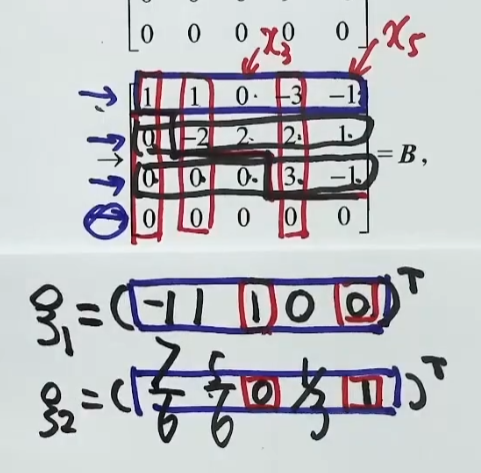 0 0 0 0 0
x₃ x₅
1 1 0 -3 -1
0 -2 2 2 1
0 0 0 3 -1 = B,
0 0 0 0 0
ξ₁ = ( -1 1 1 0 0 )ᵀ
ξ₂ = ( 7/6 5/6 0 1/3 1 )ᵀ